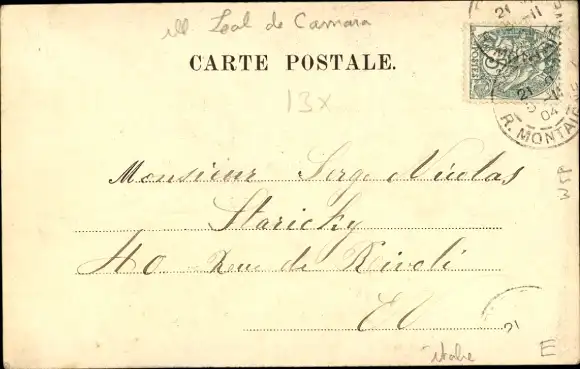 ill Leal de Camara
CARTE POSTALE.
13x
21
R. MONTAI
04
WFP
Monsieur Serge Nicolas
Staricky
40 Rue de Rivoli
EV
21
E